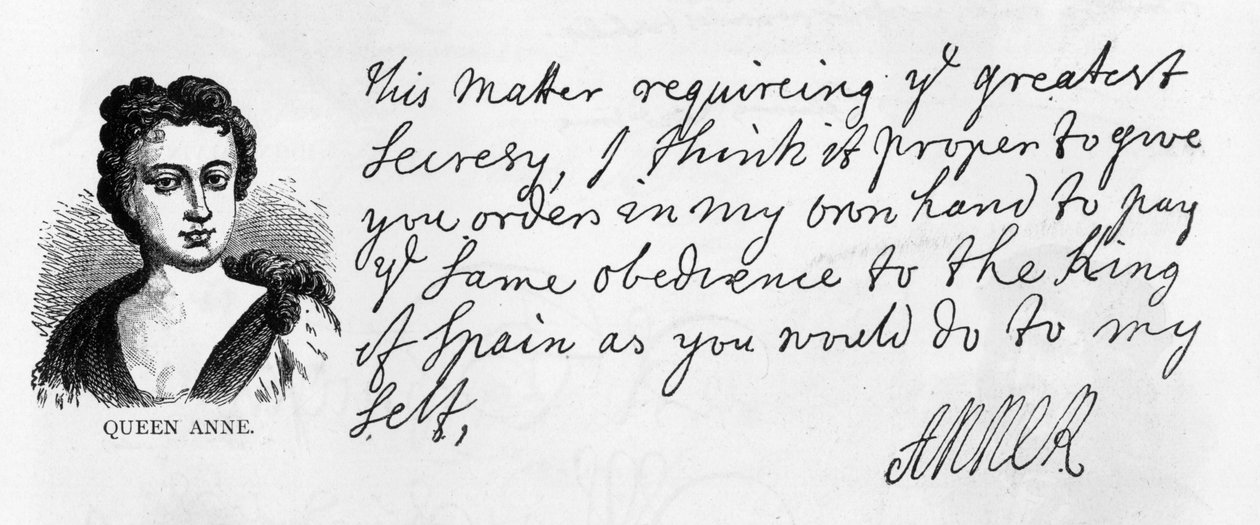 This Matter requireing yͤ greatest
secresy, I think it proper to give
you orders in my own hand to pay
yͤ same obedience to the King
of Spain as you would do to my
self,
ANNE R
QUEEN ANNE.